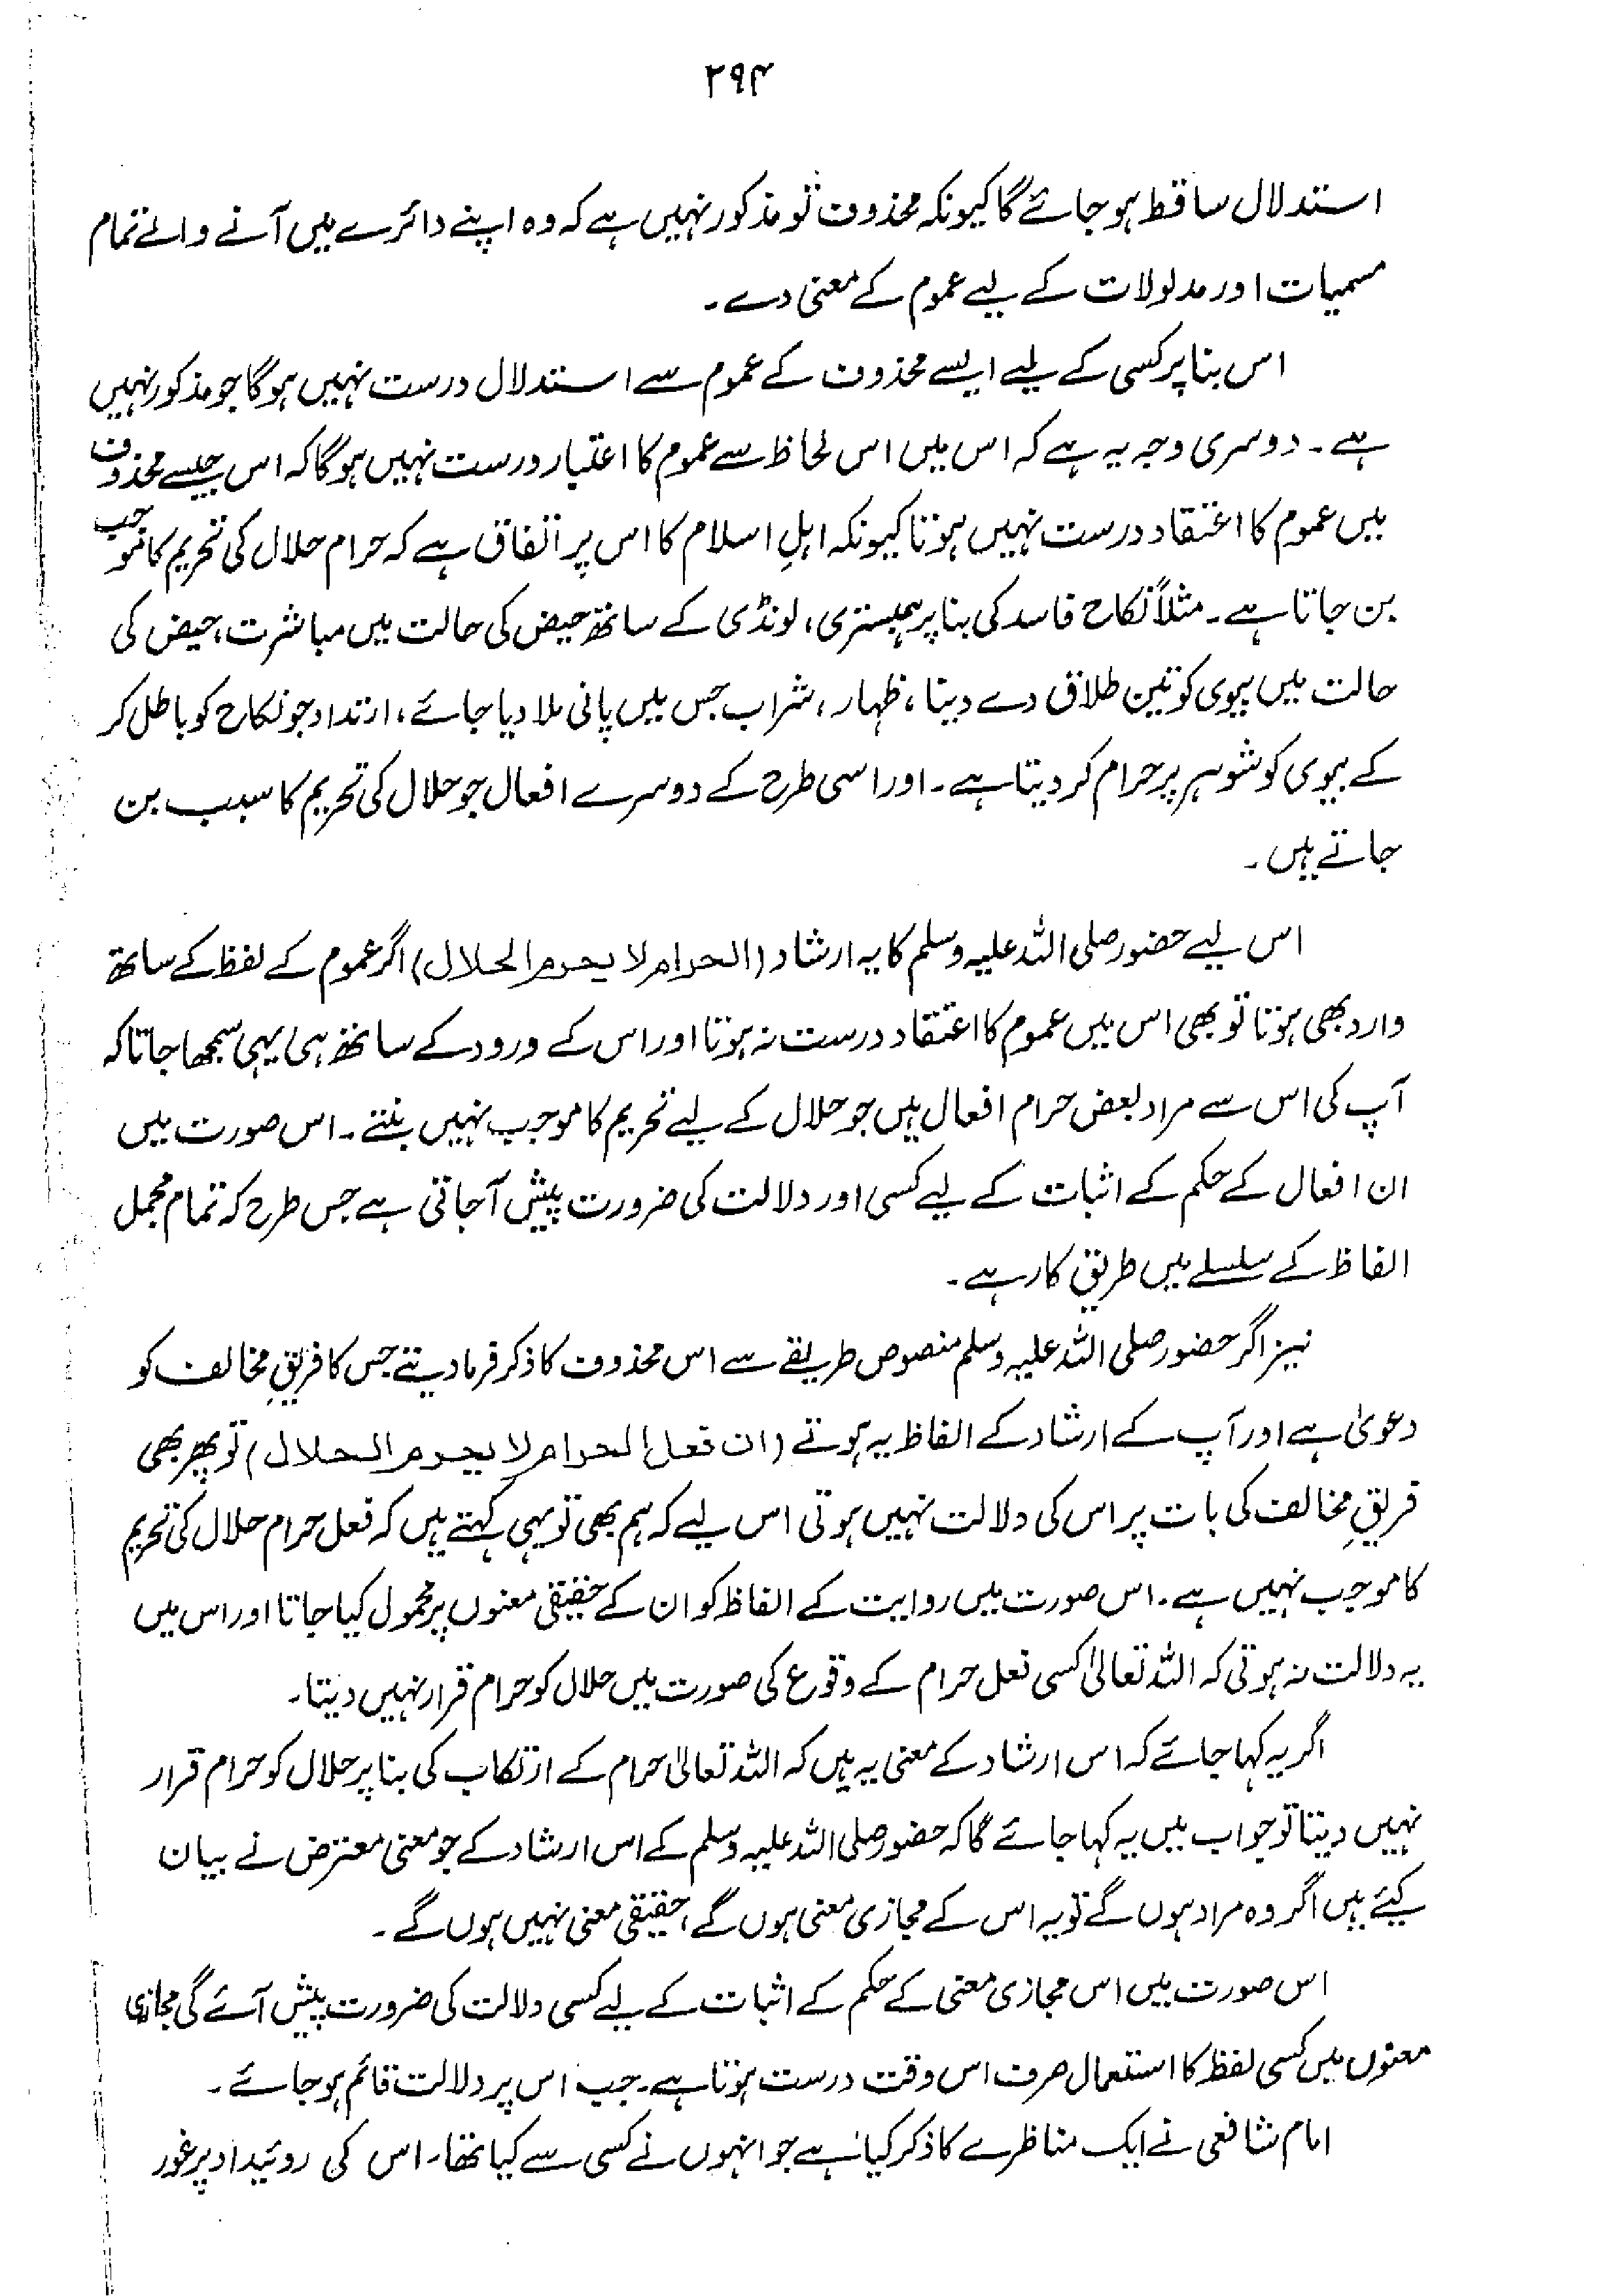 ۲۹۴
استدلال ساقط ہو جائے گا کیونکہ محذوف تو مذکور نہیں ہے کہ وہ اپنے دائرے میں آنے والے تمام
مسمیات اور مدلولات کے لیے عموم کے معنی دے۔
اس بنا پر کسی کے لیے ایسے محذوف کے عموم سے استدلال درست نہیں ہوگا جو مذکور نہیں
ہے۔ دوسری وجہ یہ ہے کہ اس میں اس لحاظ سے عموم کا اعتبار درست نہیں ہوگا کہ اس جیسے محذوف
میں عموم کا اعتقاد درست نہیں ہوتا کیونکہ اہلِ اسلام کا اس پر اتفاق ہے کہ حرام حلال کی تحریم کا موجب
بن جاتا ہے۔ مثلاً نکاح فاسد کی بنا پر ہمبستری، لونڈی کے ساتھ حیض کی حالت میں مباشرت، حیض کی
حالت میں بیوی کو تین طلاق دے دینا، ظہار، شراب جس میں پانی ملا دیا جائے، ارتداد جو نکاح کو باطل کر
کے بیوی کو شوہر پر حرام کر دیتا ہے۔ اور اسی طرح کے دوسرے افعال جو حلال کی تحریم کا سبب بن
جاتے ہیں۔
اس لیے حضور صلی اللہ علیہ وسلم کا یہ ارشاد (الحرام لا یحرم الحلال) اگر عموم کے لفظ کے ساتھ
وارد بھی ہوتا تو بھی اس میں عموم کا اعتقاد درست نہ ہوتا اور اس کے ورود کے ساتھ ہی یہی سمجھا جاتا کہ
آپ کی اس سے مراد بعض حرام افعال ہیں جو حلال کے لیے تحریم کا موجب نہیں بنتے۔ اس صورت میں
ان افعال کے حکم کے اثبات کے لیے کسی اور دلالت کی ضرورت پیش آجاتی ہے جس طرح کہ تمام مجمل
الفاظ کے سلسلے میں طریق کار ہے۔
نیز اگر حضور صلی اللہ علیہ وسلم منصوص طریقے سے اس محذوف کا ذکر فرما دیتے جس کا فریقِ مخالف کو
دعویٰ ہے اور آپ کے ارشاد کے الفاظ یہ ہوتے (ان فعل الحرام لا یحرم الحلال) تو پھر بھی
فریقِ مخالف کی بات پر اس کی دلالت نہیں ہوتی اس لیے کہ ہم بھی تو یہی کہتے ہیں کہ فعل حرام حلال کی تحریم
کا موجب نہیں ہے۔ اس صورت میں روایت کے الفاظ کو ان کے حقیقی معنوں پر محمول کیا جاتا اور اس میں
یہ دلالت نہ ہوتی کہ اللہ تعالیٰ کسی فعل حرام کے وقوع کی صورت میں حلال کو حرام قرار نہیں دیتا۔
اگر یہ کہا جائے کہ اس ارشاد کے معنی یہ ہیں کہ اللہ تعالیٰ حرام کے ارتکاب کی بنا پر حلال کو حرام قرار
نہیں دیتا تو جواب میں یہ کہا جائے گا کہ حضور صلی اللہ علیہ وسلم کے اس ارشاد کے جو معنی معترض نے بیان
کیئے ہیں اگر وہ مراد ہوں گے تو یہ اس کے مجازی معنی ہوں گے، حقیقی معنی نہیں ہوں گے۔
اس صورت میں اس مجازی معنی کے حکم کے اثبات کے لیے کسی دلالت کی ضرورت پیش آئے گی مجازی
معنوں میں کسی لفظ کا استعمال صرف اس وقت درست ہوتا ہے۔ جب اس پر دلالت قائم ہو جائے۔
امام شافعی نے ایک مناظرے کا ذکر کیا ہے جو انہوں نے کسی سے کیا تھا۔ اس کی روئیداد پر غور